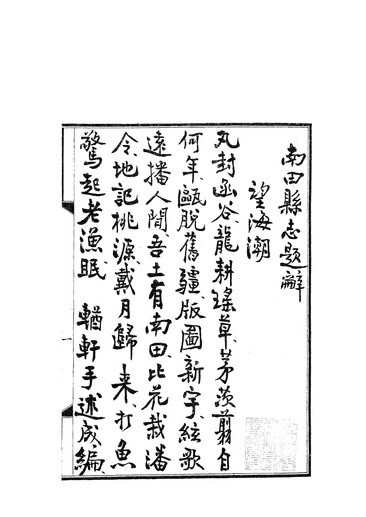 南田縣志題辭
望海潮
丸封函谷龍耕瑤草茅茨翦自
何年甌脫舊疆版圖新字絃歌
遠播人間吾土有南田比花栽潘
令地記桃源戴月歸來打魚
驚起老漁眠 輶軒手述成編